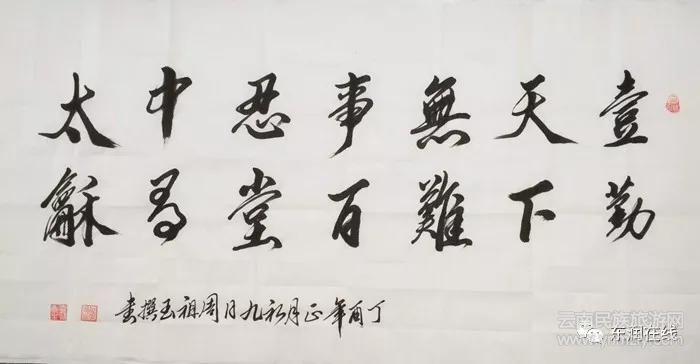 壹勤
天下
無難
事百
忍堂
中有
太龢
丁酉年正月初九日周祖玉撰书
云南民族旅游网
东润在线